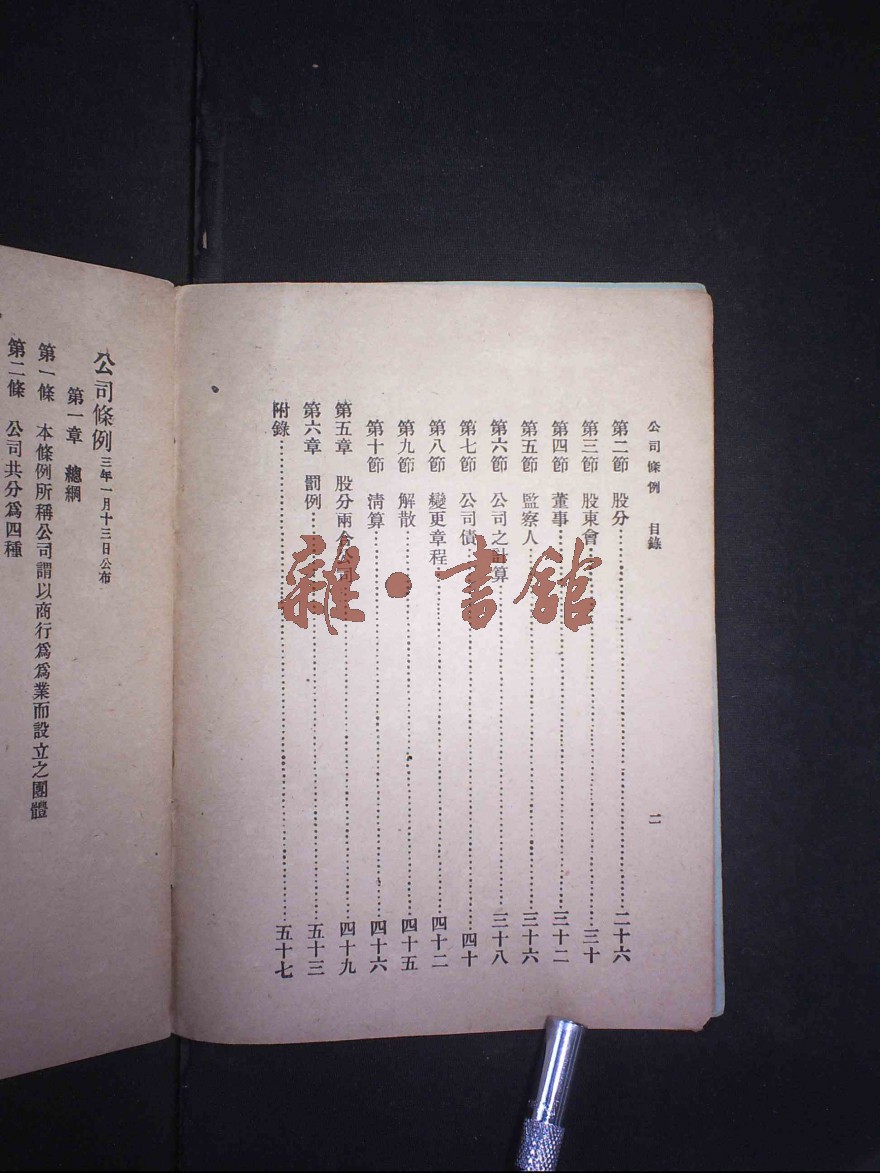 公司條例 目錄 二
第二節 股分 二十六
第三節 股東會 三十
第四節 董事 三十二
第五節 監察人 三十六
第六節 公司之計算 三十八
第七節 公司債 四十
第八節 變更章程 四十二
第九節 解散 四十五
第十節 清算 四十六
第五章 股分兩合公司 四十九
第六章 罰例 五十三
附錄 五十七
公司條例 三年一月十三日公布
第一章 總綱
第一條 本條例所稱公司謂以商行爲爲業而設立之團體
第二條 公司共分爲四種
雜·書館